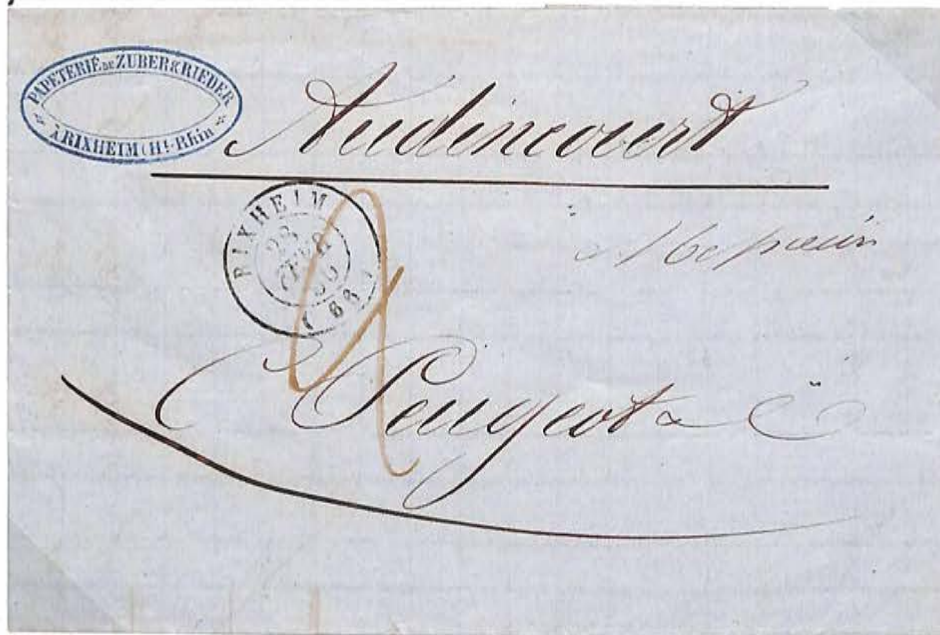 PAPETERIE DE ZUBER & RIEDER
À RIXHEIM (Ht-Rhin
Audincourt
RIXHEIM
28
(66)
Peugeot & Cie